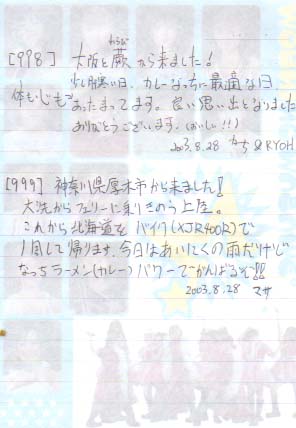 [998] 大阪と蕨から来ました!
わらび
少し肌寒い日、カレーなっちに最適な日。
体も心も あったまってます。良い思い出となりました
ありがとうございます。(おいしい!!)
2003.8.28 &RYOH
[999] 神奈川県厚木市から来ました!!
大洗からフェリーに乗りきのう上陸。
これから北海道をバイク(XJR400R)で
1周して帰ります。今日はあいにくの雨だけど
なっちラーメン(カレー)パワーでがんばるぞ!!
2003.8.28 マサ